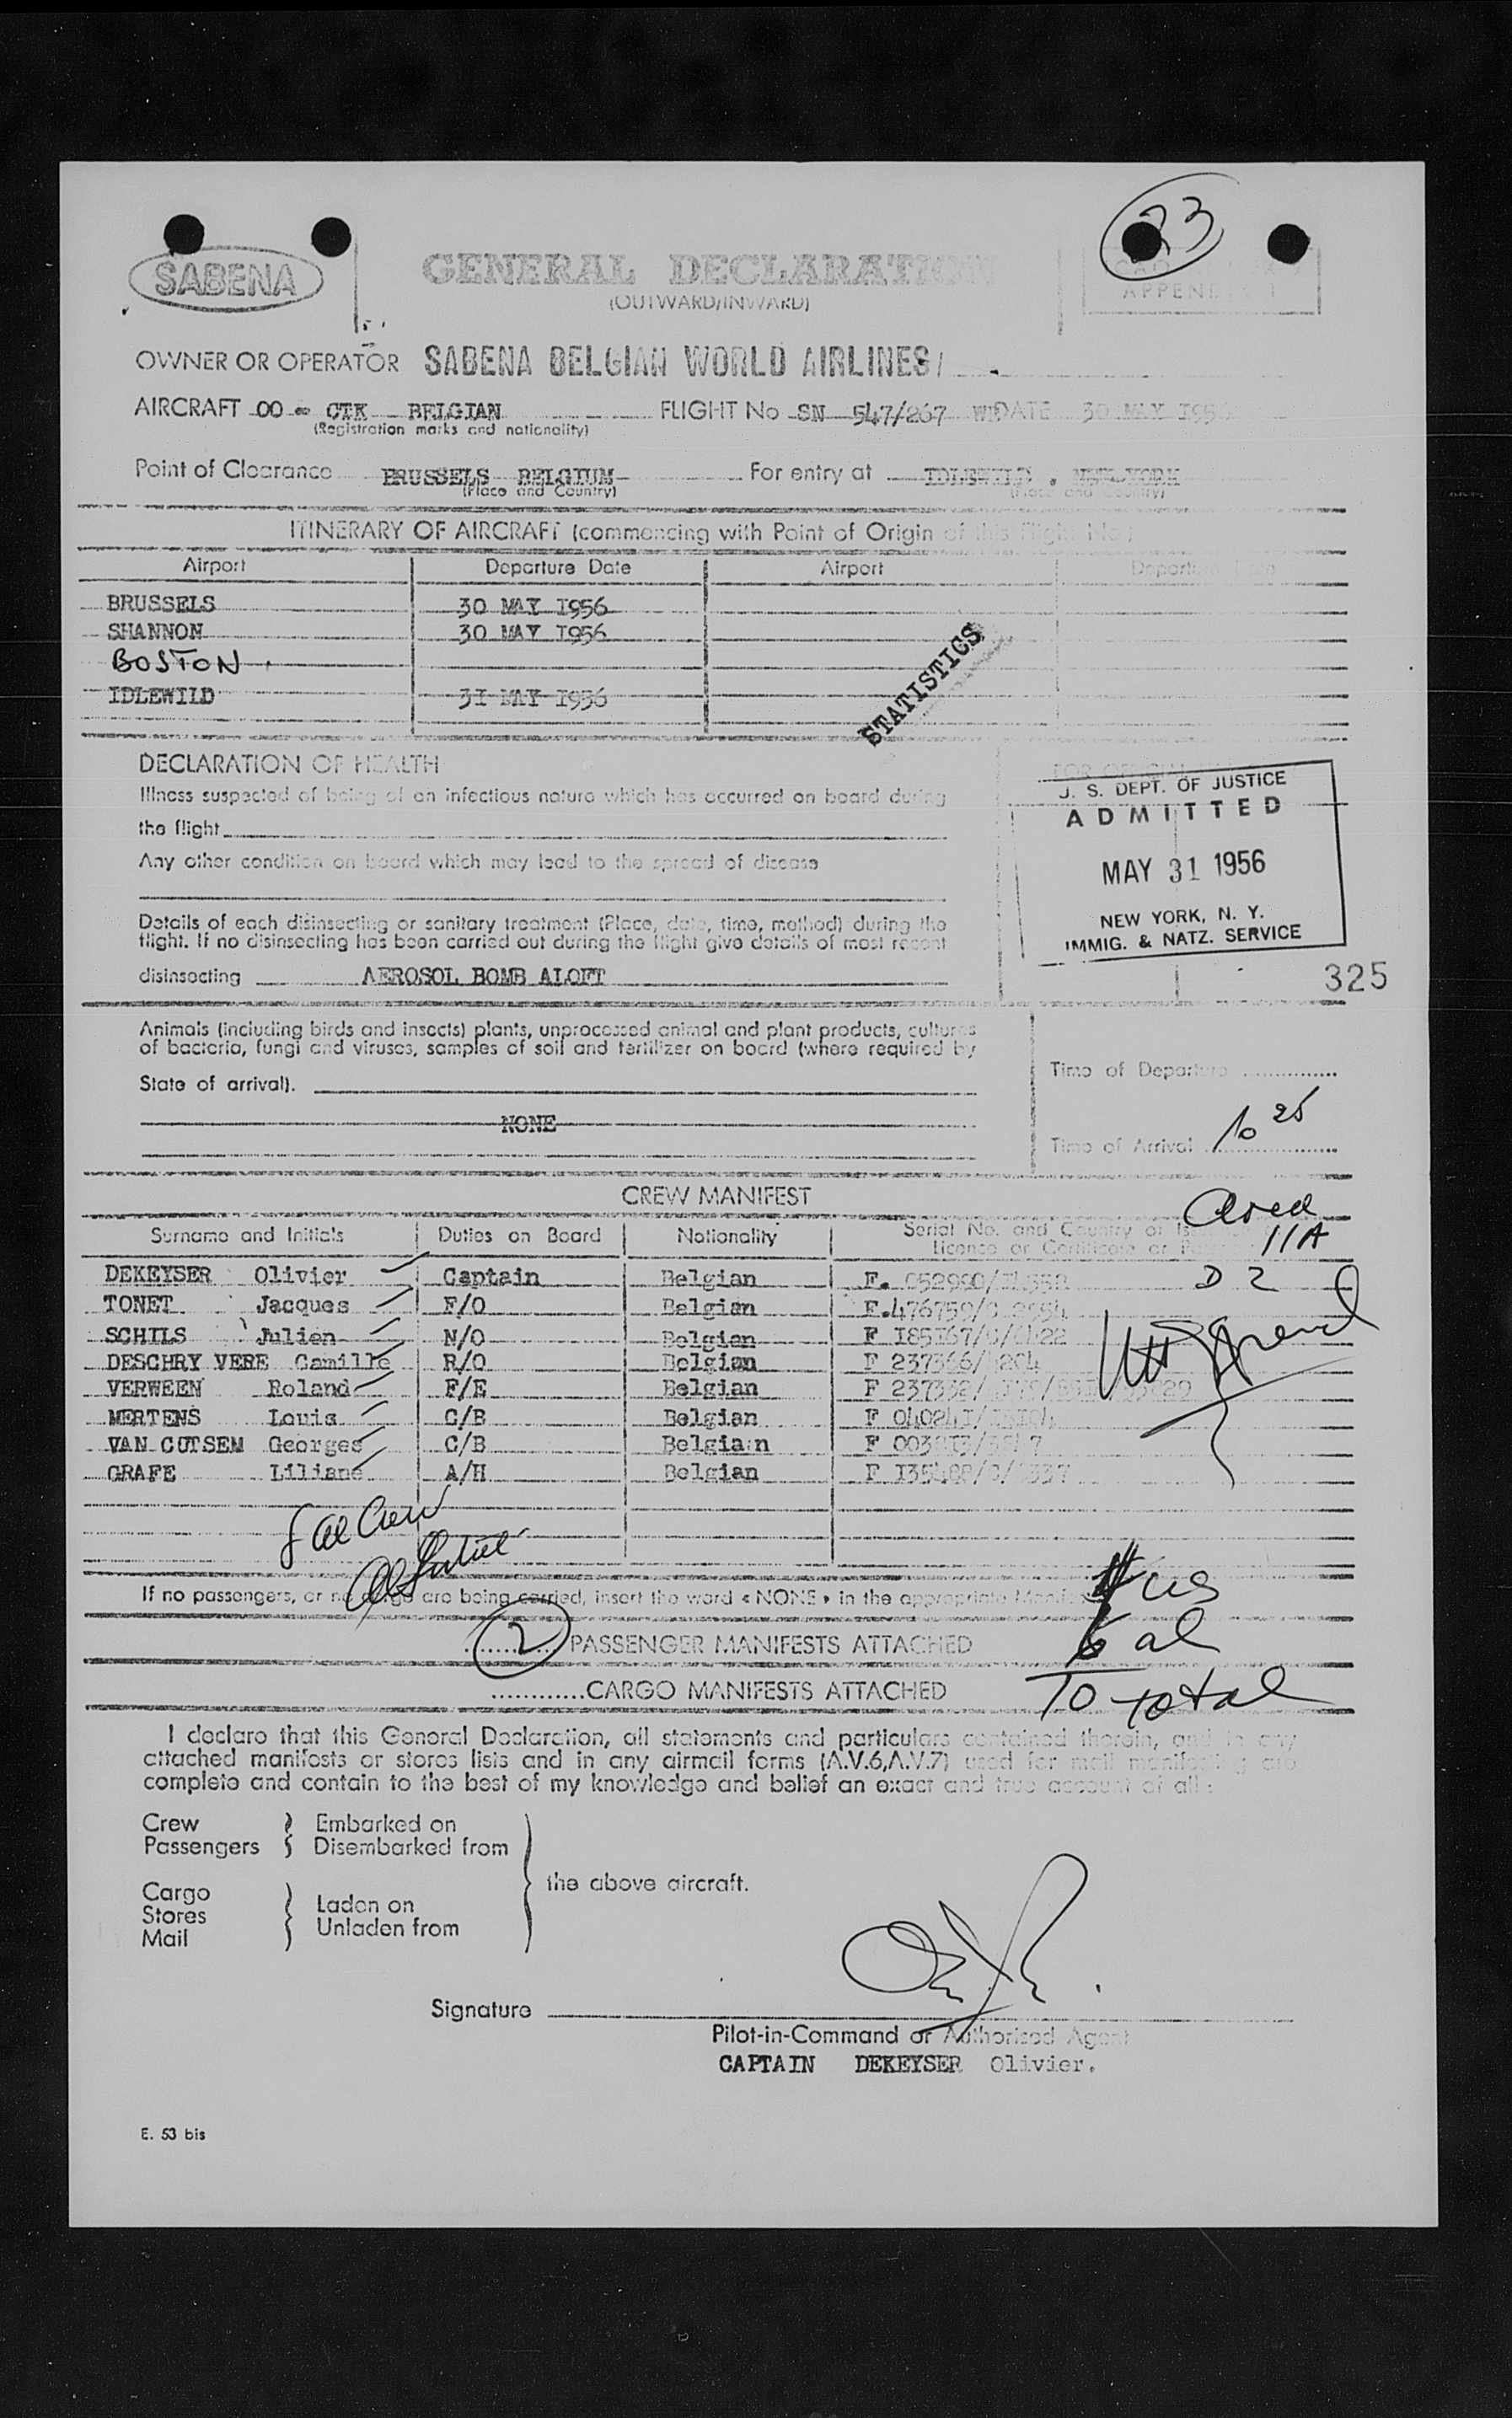 23
SABENA
GENERAL DECLARATION
(OUTWARD/INWARD)
APPENDIX 1
OWNER OR OPERATOR SABENA BELGIAN WORLD AIRLINES
AIRCRAFT OO - CTK BELGIAN FLIGHT No SN 547/267 DATE 30 MAY 1956
(Registration marks and nationality)
Point of Clearance BRUSSELS BELGIUM For entry at IDLEWILD . NEW YORK
(Place and Country) (Place and Country)
ITINERARY OF AIRCRAFT (commencing with Point of Origin of this Flight No)
Airport Departure Date Airport Departure Date
BRUSSELS 30 MAY 1956
SHANNON 30 MAY 1956
BOSTON
IDLEWILD 31 MAY 1956
STATISTICS
DECLARATION OF HEALTH
Illness suspected of being of an infectious nature which has occurred on board during
the flight
Any other condition on board which may lead to the spread of disease
Details of each disinsecting or sanitary treatment (Place, date, time, method) during the
flight. If no disinsecting has been carried out during the flight give details of most recent
disinsecting AEROSOL BOMB ALOFT
FOR OFFICIAL
U. S. DEPT. OF JUSTICE
ADMITTED
MAY 31 1956
NEW YORK, N. Y.
IMMIG. & NATZ. SERVICE
325
Animals (including birds and insects) plants, unprocessed animal and plant products, cultures
of bacteria, fungi and viruses, samples of soil and fertilizer on board (where required by
State of arrival).
NONE
Time of Departure
Time of Arrival 10 25
CREW MANIFEST
Surname and Initials Duties on Board Nationality Serial No. and Country of
Licence or Certificate or
11A
D 2
DEKEYSER Olivier Captain Belgian F.
TONET Jacques F/O Belgian F.476759/
SCHILS Julien N/O Belgian F I85I67/
DESCHRY VERE Camille R/O Belgian F 237366/
VERWEEN Roland F/E Belgian F 237332/
MERTENS Louis C/B Belgian F
VAN CUTSEM Georges C/B Belgian F
GRAFE Liliane A/H Belgian F
8 al Crew
If no passengers, or no cargo are being carried, insert the word « NONE » in the appropriate Manifest
2 PASSENGER MANIFESTS ATTACHED
CARGO MANIFESTS ATTACHED
4 us
6 al
10 total
I declare that this General Declaration, all statements and particulars contained therein, and in any
attached manifests or stores lists and in any airmail forms (A.V.6,A.V.7) used for mail manifesting are
complete and contain to the best of my knowledge and belief an exact and true account of all :
Crew Embarked on
Passengers Disembarked from
the above aircraft.
Cargo
Stores Laden on
Mail Unladen from
Signature
Pilot-in-Command or Authorised Agent
CAPTAIN DEKEYSER Olivier.
E. 53 bis